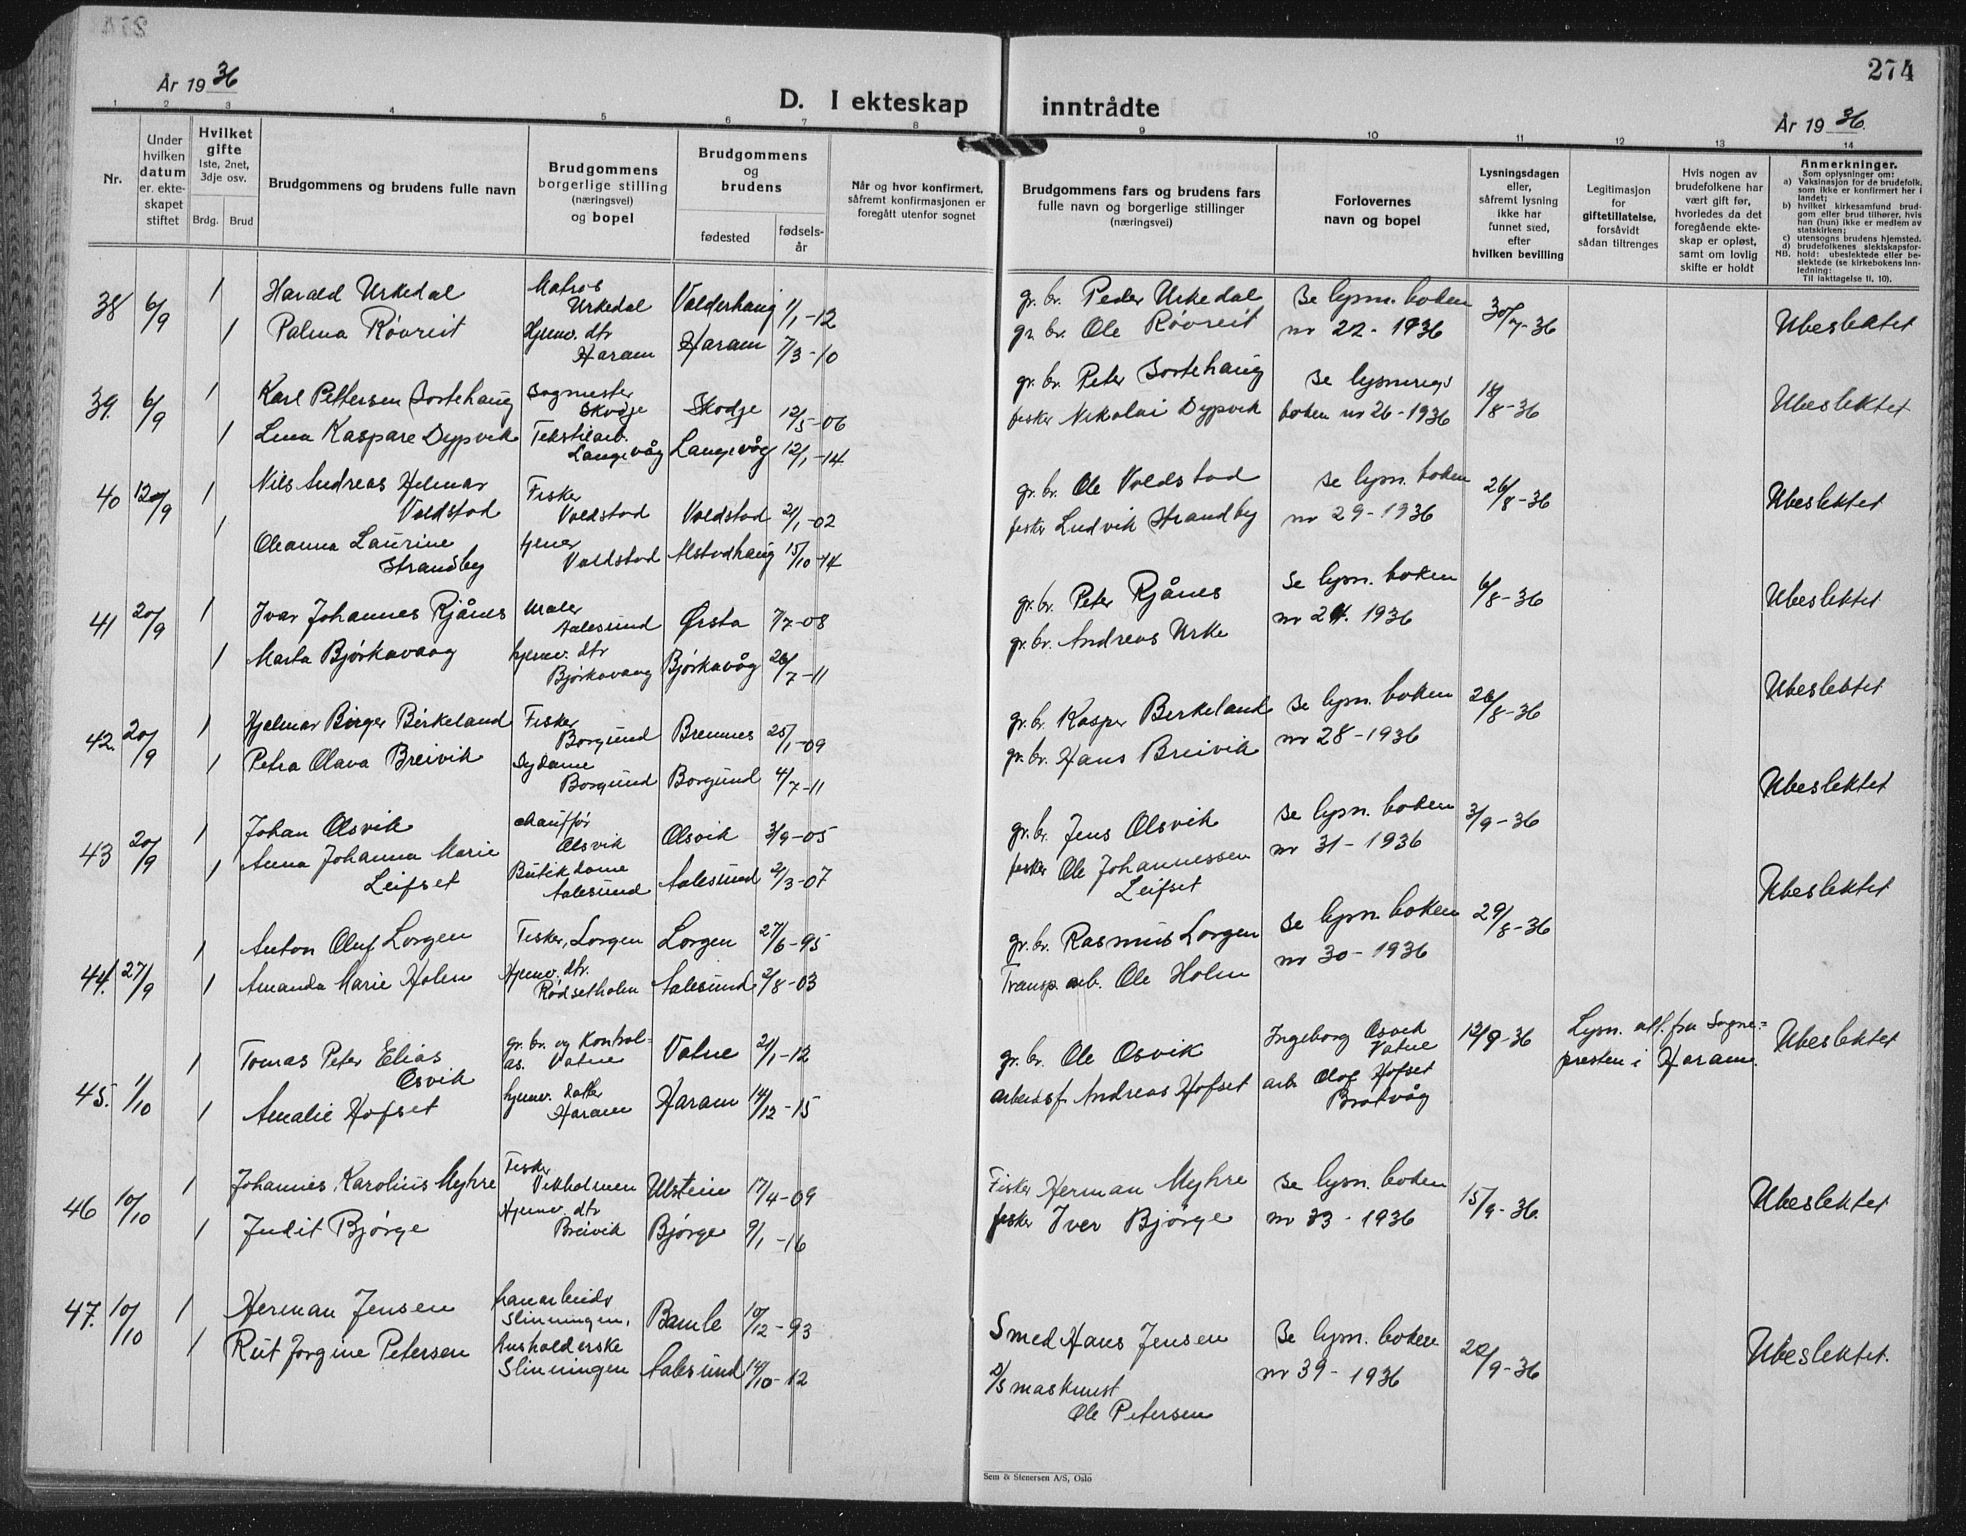 274
År 1936
D. I ekteskap inntrådte
År 1936.
1 2 3 4 5 6 7 8 9 10 11 12 13 14
Nr.
Under hvilken datum er ekteskapet stiftet
Hvilket gifte
1ste, 2net, 3dje osv.
Brdg. Brud
Brudgommens og brudens fulle navn
Brudgommens borgerlige stilling (næringsvei) og bopel
Brudgommens og brudens
fødested
fødselsår
Når og hvor konfirmert, såfremt konfirmasjonen er foregått utenfor sognet
Brudgommens fars og brudens fars fulle navn og borgerlige stillinger (næringsvei)
Forlovernes navn og bopel
Lysningsdagen eller, såfremt lysning ikke har funnet sted, efter hvilken bevilling
Legitimasjon for giftetillatelse, forsåvidt sådan tiltrenges
Hvis nogen av brudefolkene har vært gift før, hvorledes da det foregående ekteskap er opløst, samt om lovlig skifte er holdt
Anmerkninger.
Som oplysninger om:
a) Vaksinasjon for de brudefolk, som ikke er konfirmert her i landet;
b) hvilket kirkesamfund brudgom eller brud tilhører, hvis han (hun) ikke er medlem av statskirken;
c) utensogns brudens hjemsted.
d) brudefolkenes slektskapsforhold: ubeslektede eller beslektede (se kirkebokens innledning:
NB.
Til iakttagelse II, 10).
38 6/9 1 Harald Urkedal Matros Urkedal Valderhaug 1/1-12 gr. br. Peder Urkedal Se lysn. boken nr 22-1936 30/7-36 Ubeslektet
1 Palma Røvreit Hjemv. dtr Haram Haram 7/3-10 gr. br. Ole Røvreit
39. 6/9 1 Karl Pettersen Sortehaug Sagmester Skodje Skodje 12/5-06 gr. br. Peter Sortehaug Se lysnings boken nr 26-1936 18/8-36 Ubeslektet
1 Lina Kaspare Dypvik Tekstilarb. Langevåg Langevåg 12/1-14 fisker Nikolai Dypvik
40 1 Nils Andreas Helmar Valdstad Fisker Valdstad Valdstad 21/1-02 gr. br. Ole Valdstad Se lysn. boken nr 29-1936 26/8-36 Ubeslektet
1 Oleanna Laurine Strandby Valdstad Alstadhaug 15/10-14 fisker Ludvik Strandby
41 20/9 1 Ivar Johannes Rjånes Maler Aalesund Ørsta 7/7-08 gr. br. Peter Rjånes Se lysn. boken nr 24. 1936 6/8-36 Ubeslektet
1 Marta Bjørkavaag hjemv. dtr Bjørkavaag Bjørkavåg 26/7-11 gr. br. Andreas Urke
42. 20/9 1 Hjelmar Birger Birkeland Fisker Borgund Bremnes 25/1-09 gr. br. Kasper Birkeland Se lysn. boken nr 28-1936 26/8-36 Ubeslektet
1 Petra Olava Breivik Sydame Borgund Borgund 4/7-11 gr. br. Hans Breivik
43 20/9 1 Johan Olsvik chauffør Olsvik Olsvik 3/9-05 gr. br. Jens Olsvik Se lysn. boken nr 31-1936 3/9-36 Ubeslektet
1 Anna Johanna Marie Leifset Butikdame Aalesund Aalesund 2/3-07 fisker Ole Johannessen Leifset
44. 27/9 1 Anton Oluf Lorgen Fisker, Lorgen Lorgen 27/6-95 gr. br. Rasmus Lorgen Se lysn. boken nr 30-1936 29/8-36 Ubeslektet
1 Amanda Marie Holm Hjemv. dtr. Rødsetholm Aalesund 2/8-03 Transp. arb. Ole Holm
45. 1/10 1 Tomas Peter Elias Osvik gr. br. og Kontrol-as. Vatne Vatne 21/1-12 gr. br. Ole Osvik Ingeborg Osvik Vatne 12/9-36 Lysn. att. fra Sogne-presten i Haram. Ubeslektet
1 Amalie Hofset hjemv. datter Haram Haram 14/12-15 arbeidsf. Andreas Hofset arb. Olaf Hofset Bratvåg
46 10/10 1 Johannes Karolius Myhre Fisker Vikholmen Ulstein 17/4-09 Fisker Herman Myhre Se lysn. boken nr 33-1936 15/9-36. Ubeslektet
1 Judit Bjørge Hjemv. dtr Breivik Bjørge 9/1-16 fisker Iver Bjørge
47. 10/10 1 Herman Jensen Slinningen, Bamle 10/12-93 Smed Hans Jensen Se lysn. boken nr 39-1936 22/9-36 Ubeslektet.
1 Rut Jørgine Petersen Husholderske Slinningen Aalesund 14/10-12 D/S maskinist Ole Petersen
Sem & Stenersen A/S, Oslo